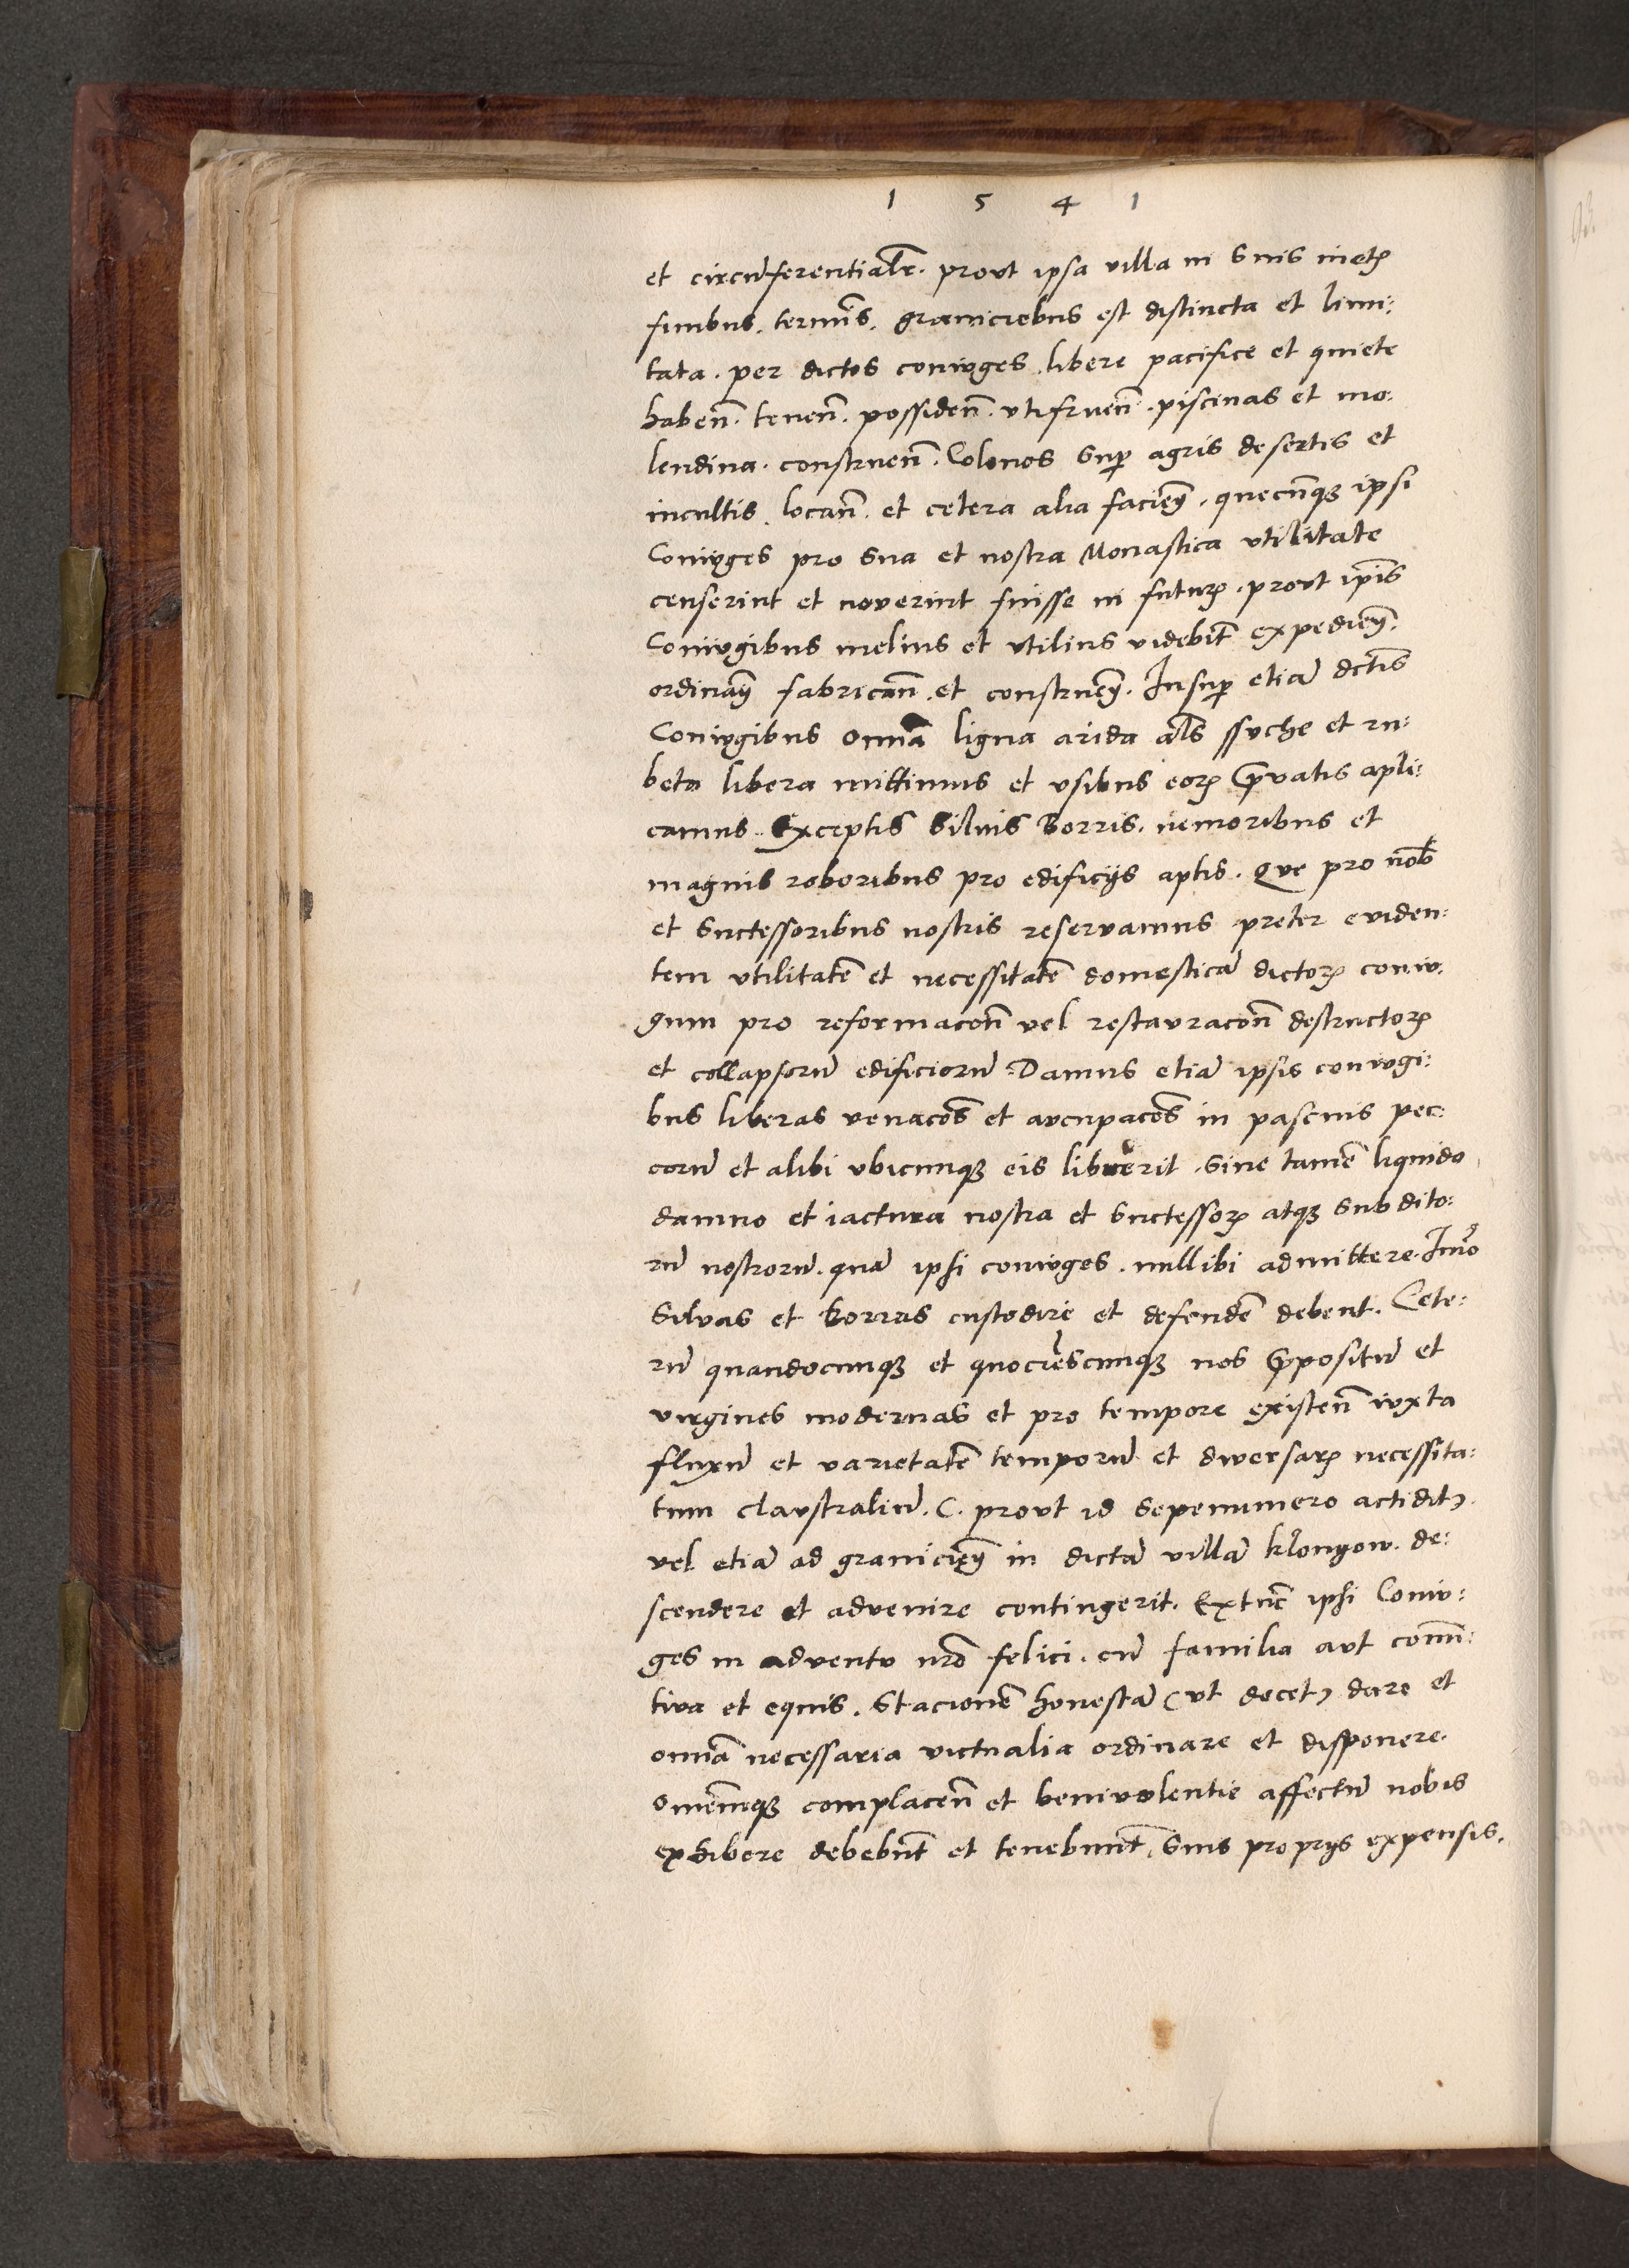 1 5 4 1
et circũferentialr̃. prout ipsa villa in suis metꝭ
finibus. termĩs. graniciebus est distincta et limi:
tata. per dictos coniuges. libere pacifice et quiete
habeñ. teneñ. possideñ. vtifrueñ. piscinas et mo.
lendina. construeñ. Colonos suꝑ agris desertis et
incultis. locañ. et cetera alia facieñ. quecũqꝫ ipsi
Coniuges pro sua et nostra Monastica vtilitate
censerint et noverint fuisse in futurꝭ. prout ip̃is
Coniugibus melius et vtilius videbit̃ expedieñ.
ordinañ fabricañ. et construeñ. Insuꝑ etiã dctĩs
Coniugibus omñia ligna arida als̃ ssuche et ru:
beta libera mittimus et vsibus eorꝭ p̱rvatis apli:
camus. Exceptis Siluis Borris. nemoribus et
magnis roboribus pro edificijs aptis. Que pro nob̃
et Suctessoribus nostris reservamus preter eviden:
tem vtilitatẽ et necessitatẽ domesticã dictorꝭ coniu.
gum pro reformacoñ vel restauracoñ destructorꝭ
et collapsorũ edificiorũ. Damus etiã ipsis coniugi:
bus liberas venacõs et aucupacõs in pascuis pec:
corũ et alibi vbicunqꝫ eis libuerit. sine tamẽ liquido
damno et iactura nostra et Suctessorꝭ atqꝫ Subdito:
rũ nostrorũ. quã ipsi coniuges. nullibi admittere. Im̃o
Siluas et Borras custodire et defendẽ debent. Cete:
rũ quandocunqꝫ et quociescunqꝫ nos p̱positũ et
virgines modernas et pro tempore existeñ iuxta
fluxũ et varietatẽ temporũ et diversarꝭ necessita:
tum claustraliũ. ( prout id Sepenumero actidit)
vel etiã ad granicieñ in dictã villã klonyow. de:
scendere et advenire contingerit. Extũc ipsi Coniu:
ges in adventu nr̃o felici. cũ familia aut com̃i:
tiva et equis. Stacionẽ honestã (vt decet) dare et
omñia necessaria victualia ordinare et disponere.
Omẽmqꝫ complaceñ et benivolentie affectũ nobis
exhibere debebũt et tenebunt̃. Suis proprijs expensis.